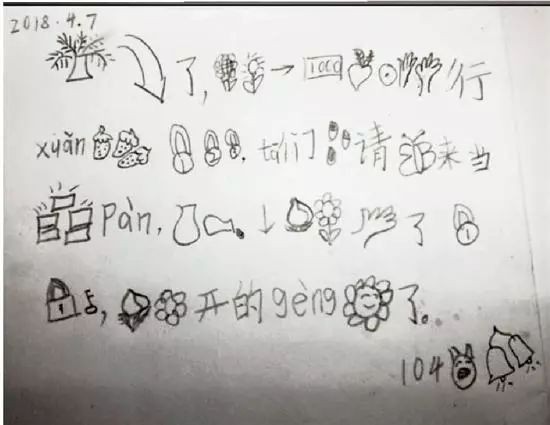 2018.4.7
了, → 1000 行
xuǎn . tā们 请 来当
Pàn, ↓ 了
, 开的gèng 了。
104